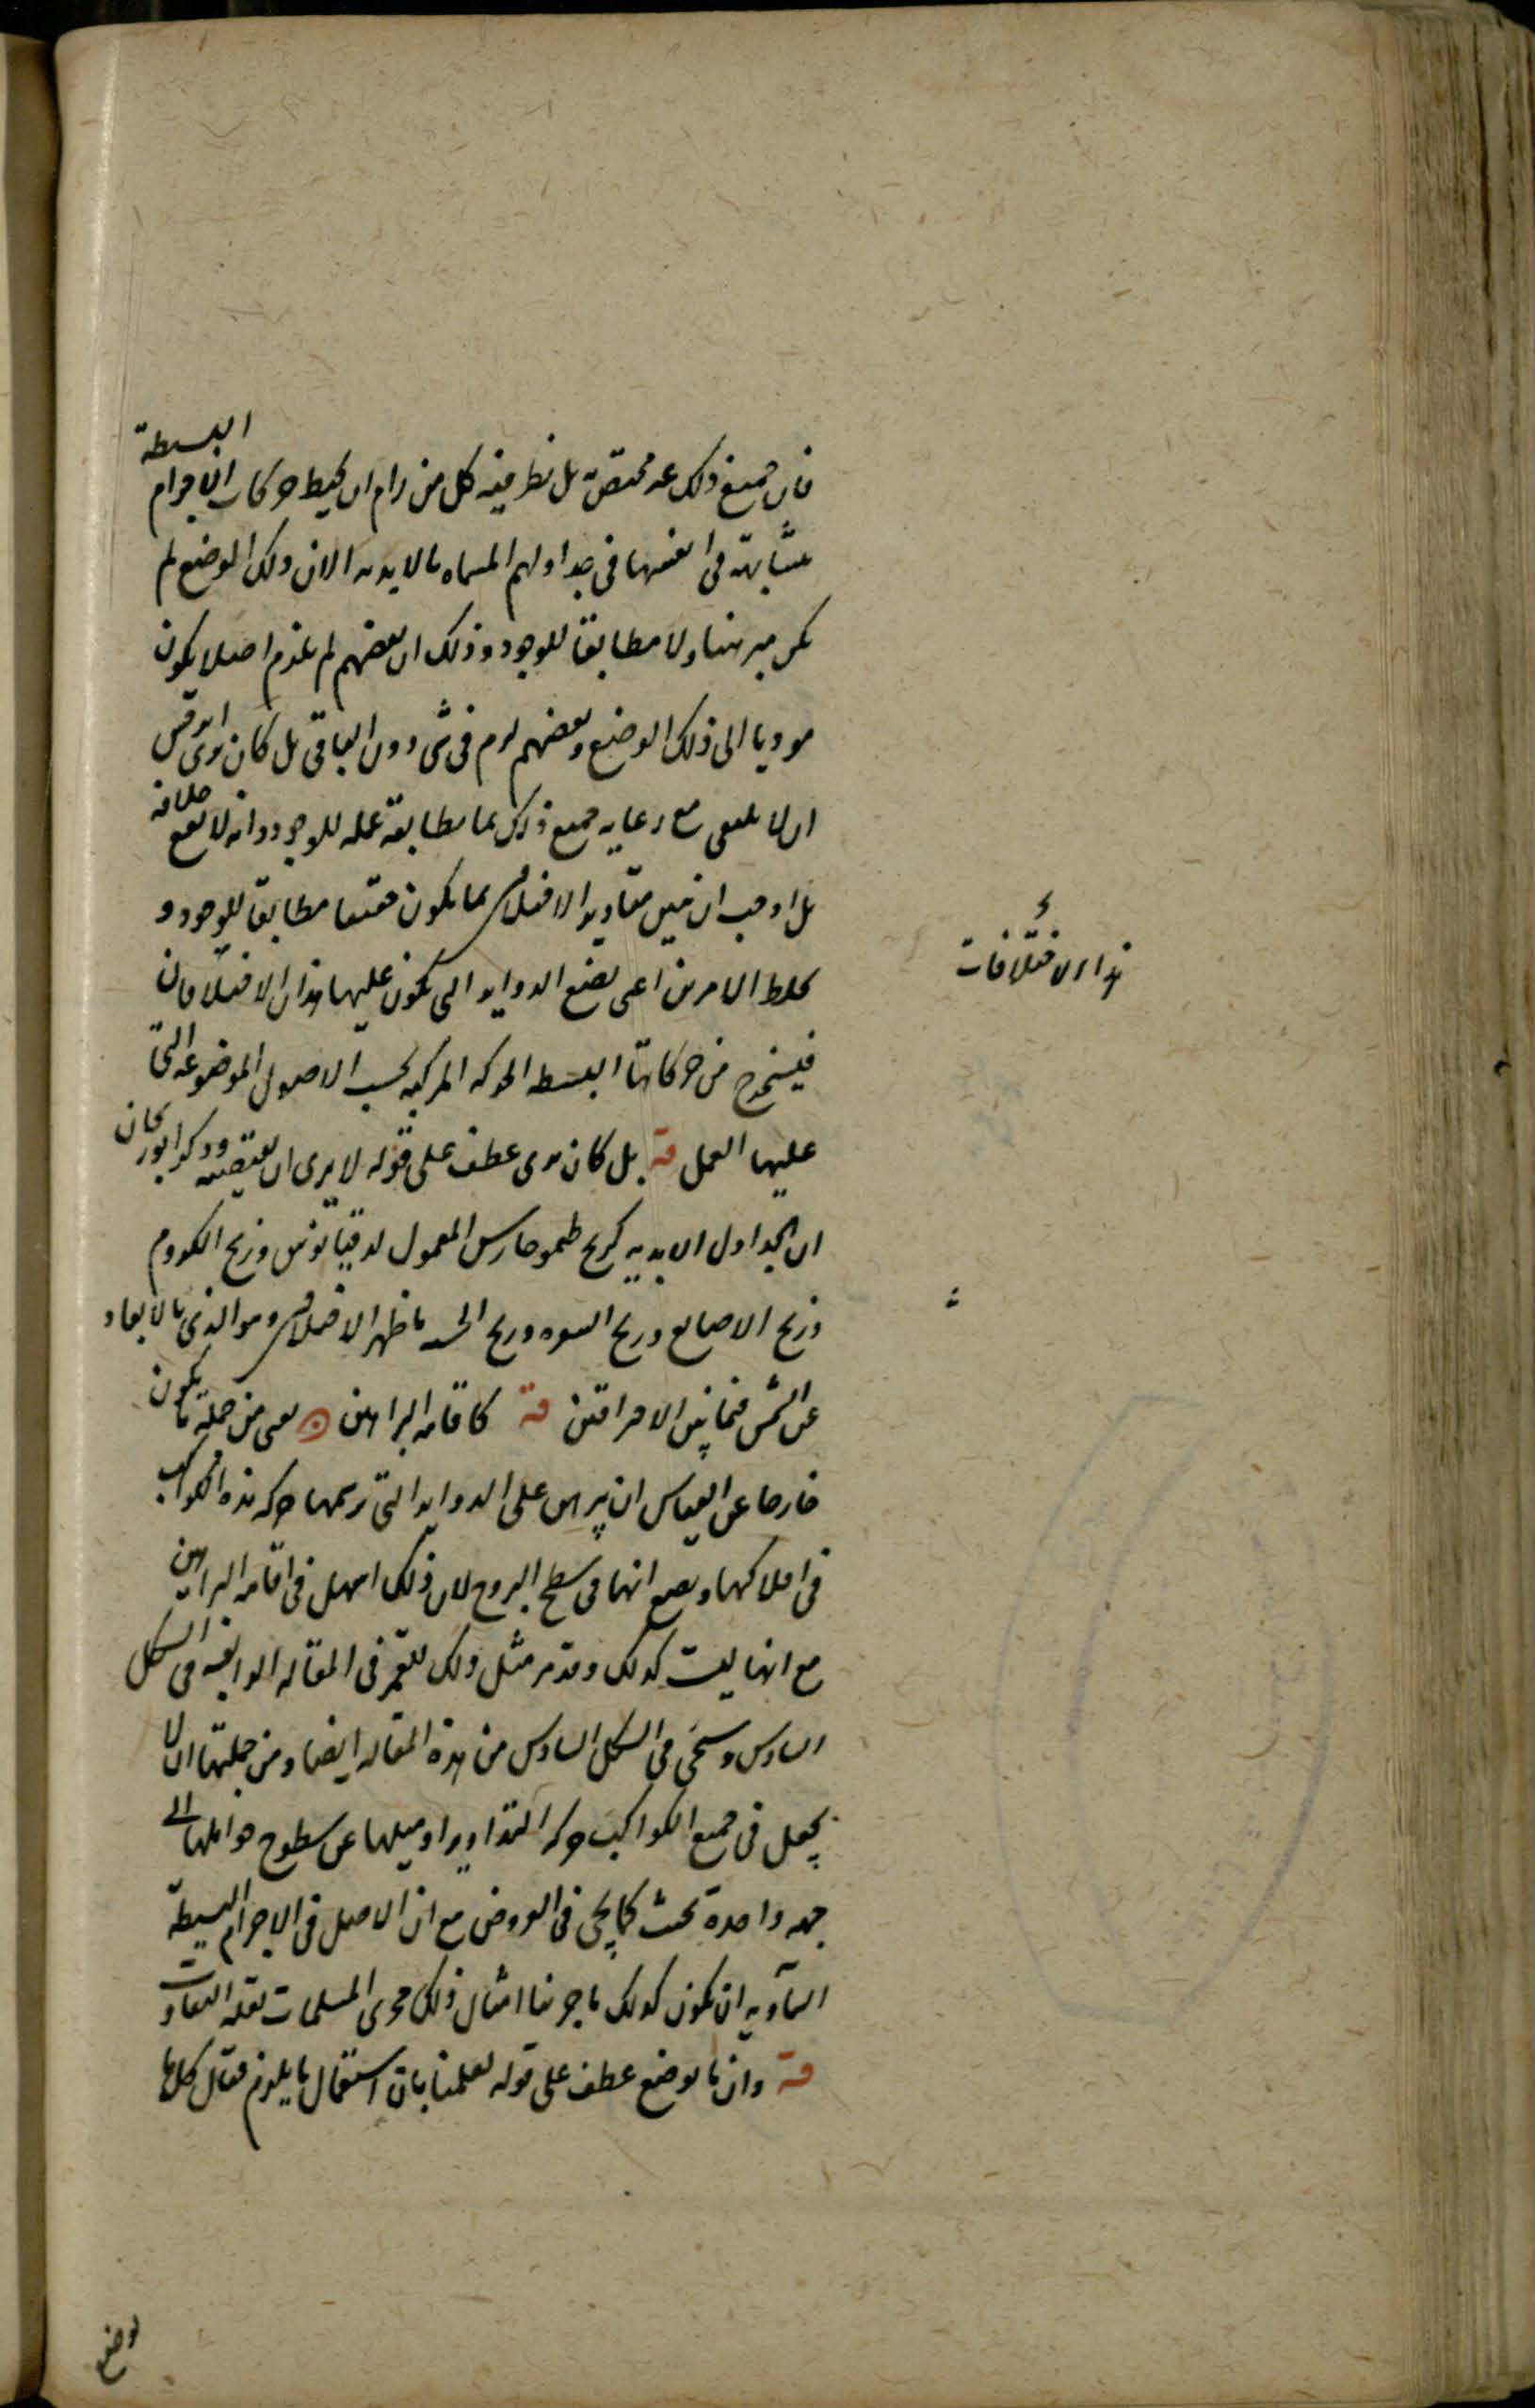 فان جميع ذلك غير مختص به بل نظر فيه كل من رام ان يحيط حركات الاجرام البسيطة
متشابهة في انفسها في جداولهم المسماه بالابديه الا ان ذلك الوضع لم
يكن مبرهنا ولا مطابقا للوجود وذلك ان بعضهم لم يلزم اصلا يكون
موديا الى ذلك الوضع وبعضهم لزم في شى دون الباقي بل كان يرى ابرخس
ان لا يكتفى مع رعايه جميع ذلك بما مطابقة عمله للوجود وانه لا يقع خلافه
بل اوجب ان يبين مقادير الاختلافين بما يكون متفقا مطابقا للوجود و
يخلط الامرين اعنى يضع الدواير التى يكون عليها هذان الاختلافان
فيستخرج من حركاتها البسيطه الحركه المركبه بحسب الاصول الموضوعه التى
عليها العمل قه بل كان يرى عطف على قوله لا يرى ان يقتصر وذكر ابوريحان
ان الجداول الابديه كزيج طيموخارس المعمول لدقيانوس وزيج الكروم
وزيج الاصابع وزيج وزيج باظهر الاختلافين وهو الذى بالابعاد
عن الشمس فيما بين الاحراقين قه كاقامه البراهين يعنى من جملة ما يكون
خارجا عن القياس ان يبرهن على الدواير التى ترسمها حركه هذه الكواكب
فى افلاكها ويضع انها فى سطح البروج لان ذلك اسهل فى اقامه البراهين
مع انها ليست كذلك وقد مر مثل ذلك للقمر فى المقاله الرابعه فى الشكل
السادس وسيجى فى الشكل السادس من هذه المقاله ايضا ومن جملتها ان لا
يجعل فى جميع الكواكب حركه التداوير او ميلها عن سطوح حواملها الى
جهه واحدة بحيث كما يجى فى العروض مع ان الاصل فى الاجرام البسيطة
السماويه ان يكون كذلك باجرينا امثال ذلك مجرى المسلمات لقله التفاوت
قه وان ما يوضع عطف على قوله لعلمنا بان استعمال ما يلزم فقال كلها
هذا الاختلافات
يوضع